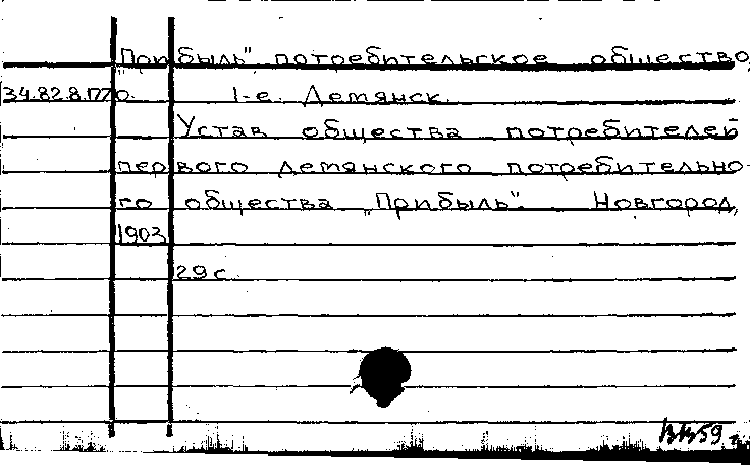 "Прибыль" потребительское общество
34.82.8.170. 1-е. Демянск.
Устав общества потребителей
первого демянского потребительно-
го общества "Прибыль". Новгород,
1903
29 с.